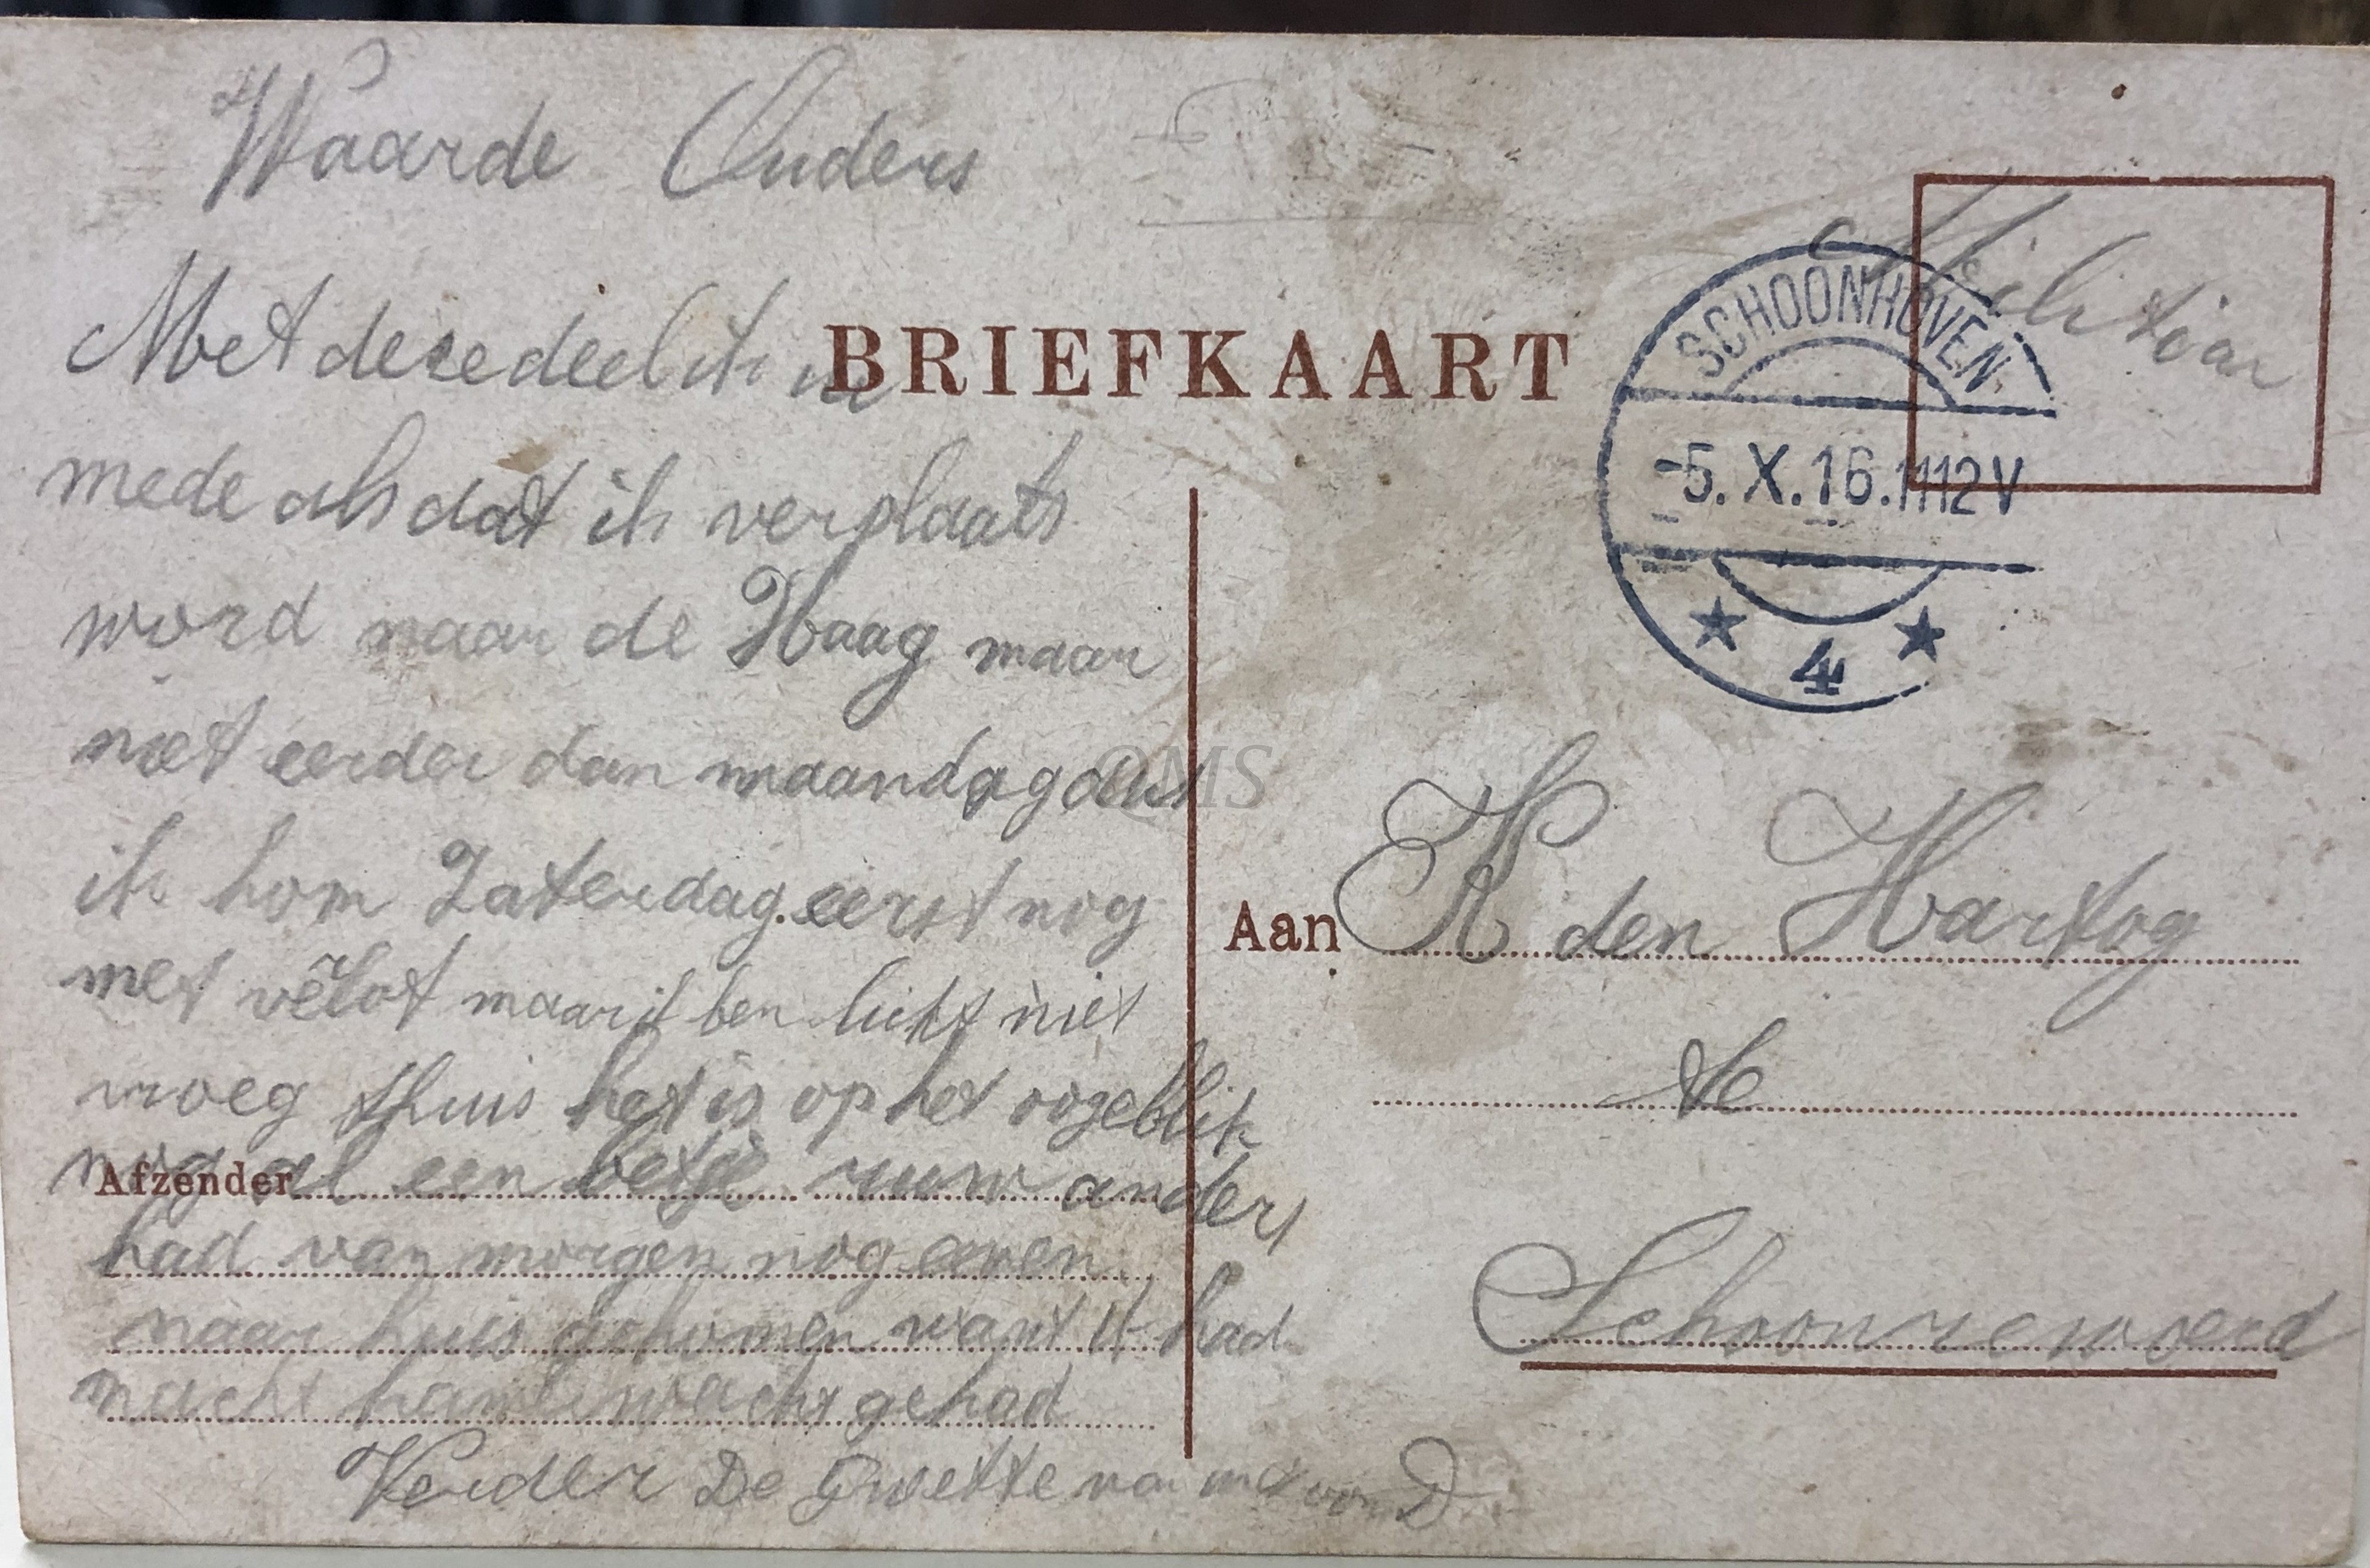 Waarde Ouders
Met deze deel ik u
mede als dat ik verplaats
word naar de Haag maar
niet eerder dan maandag dus
ik kom Zaterdag eerst nog
met vêlot maar ik ben licht niet
vroeg thuis het is op het oogeblik
nog al een betje ruw anders
had van morgen nog eeven
naar huis gekomen want ik had
nacht kamerwacht gehad
Verder De Groette van mei
Afzender
BRIEFKAART
Militair
SCHOONHOVEN
-5.X.16.1112V
4
Aan K den Hartog
te
Schoonrewoerd
@MS